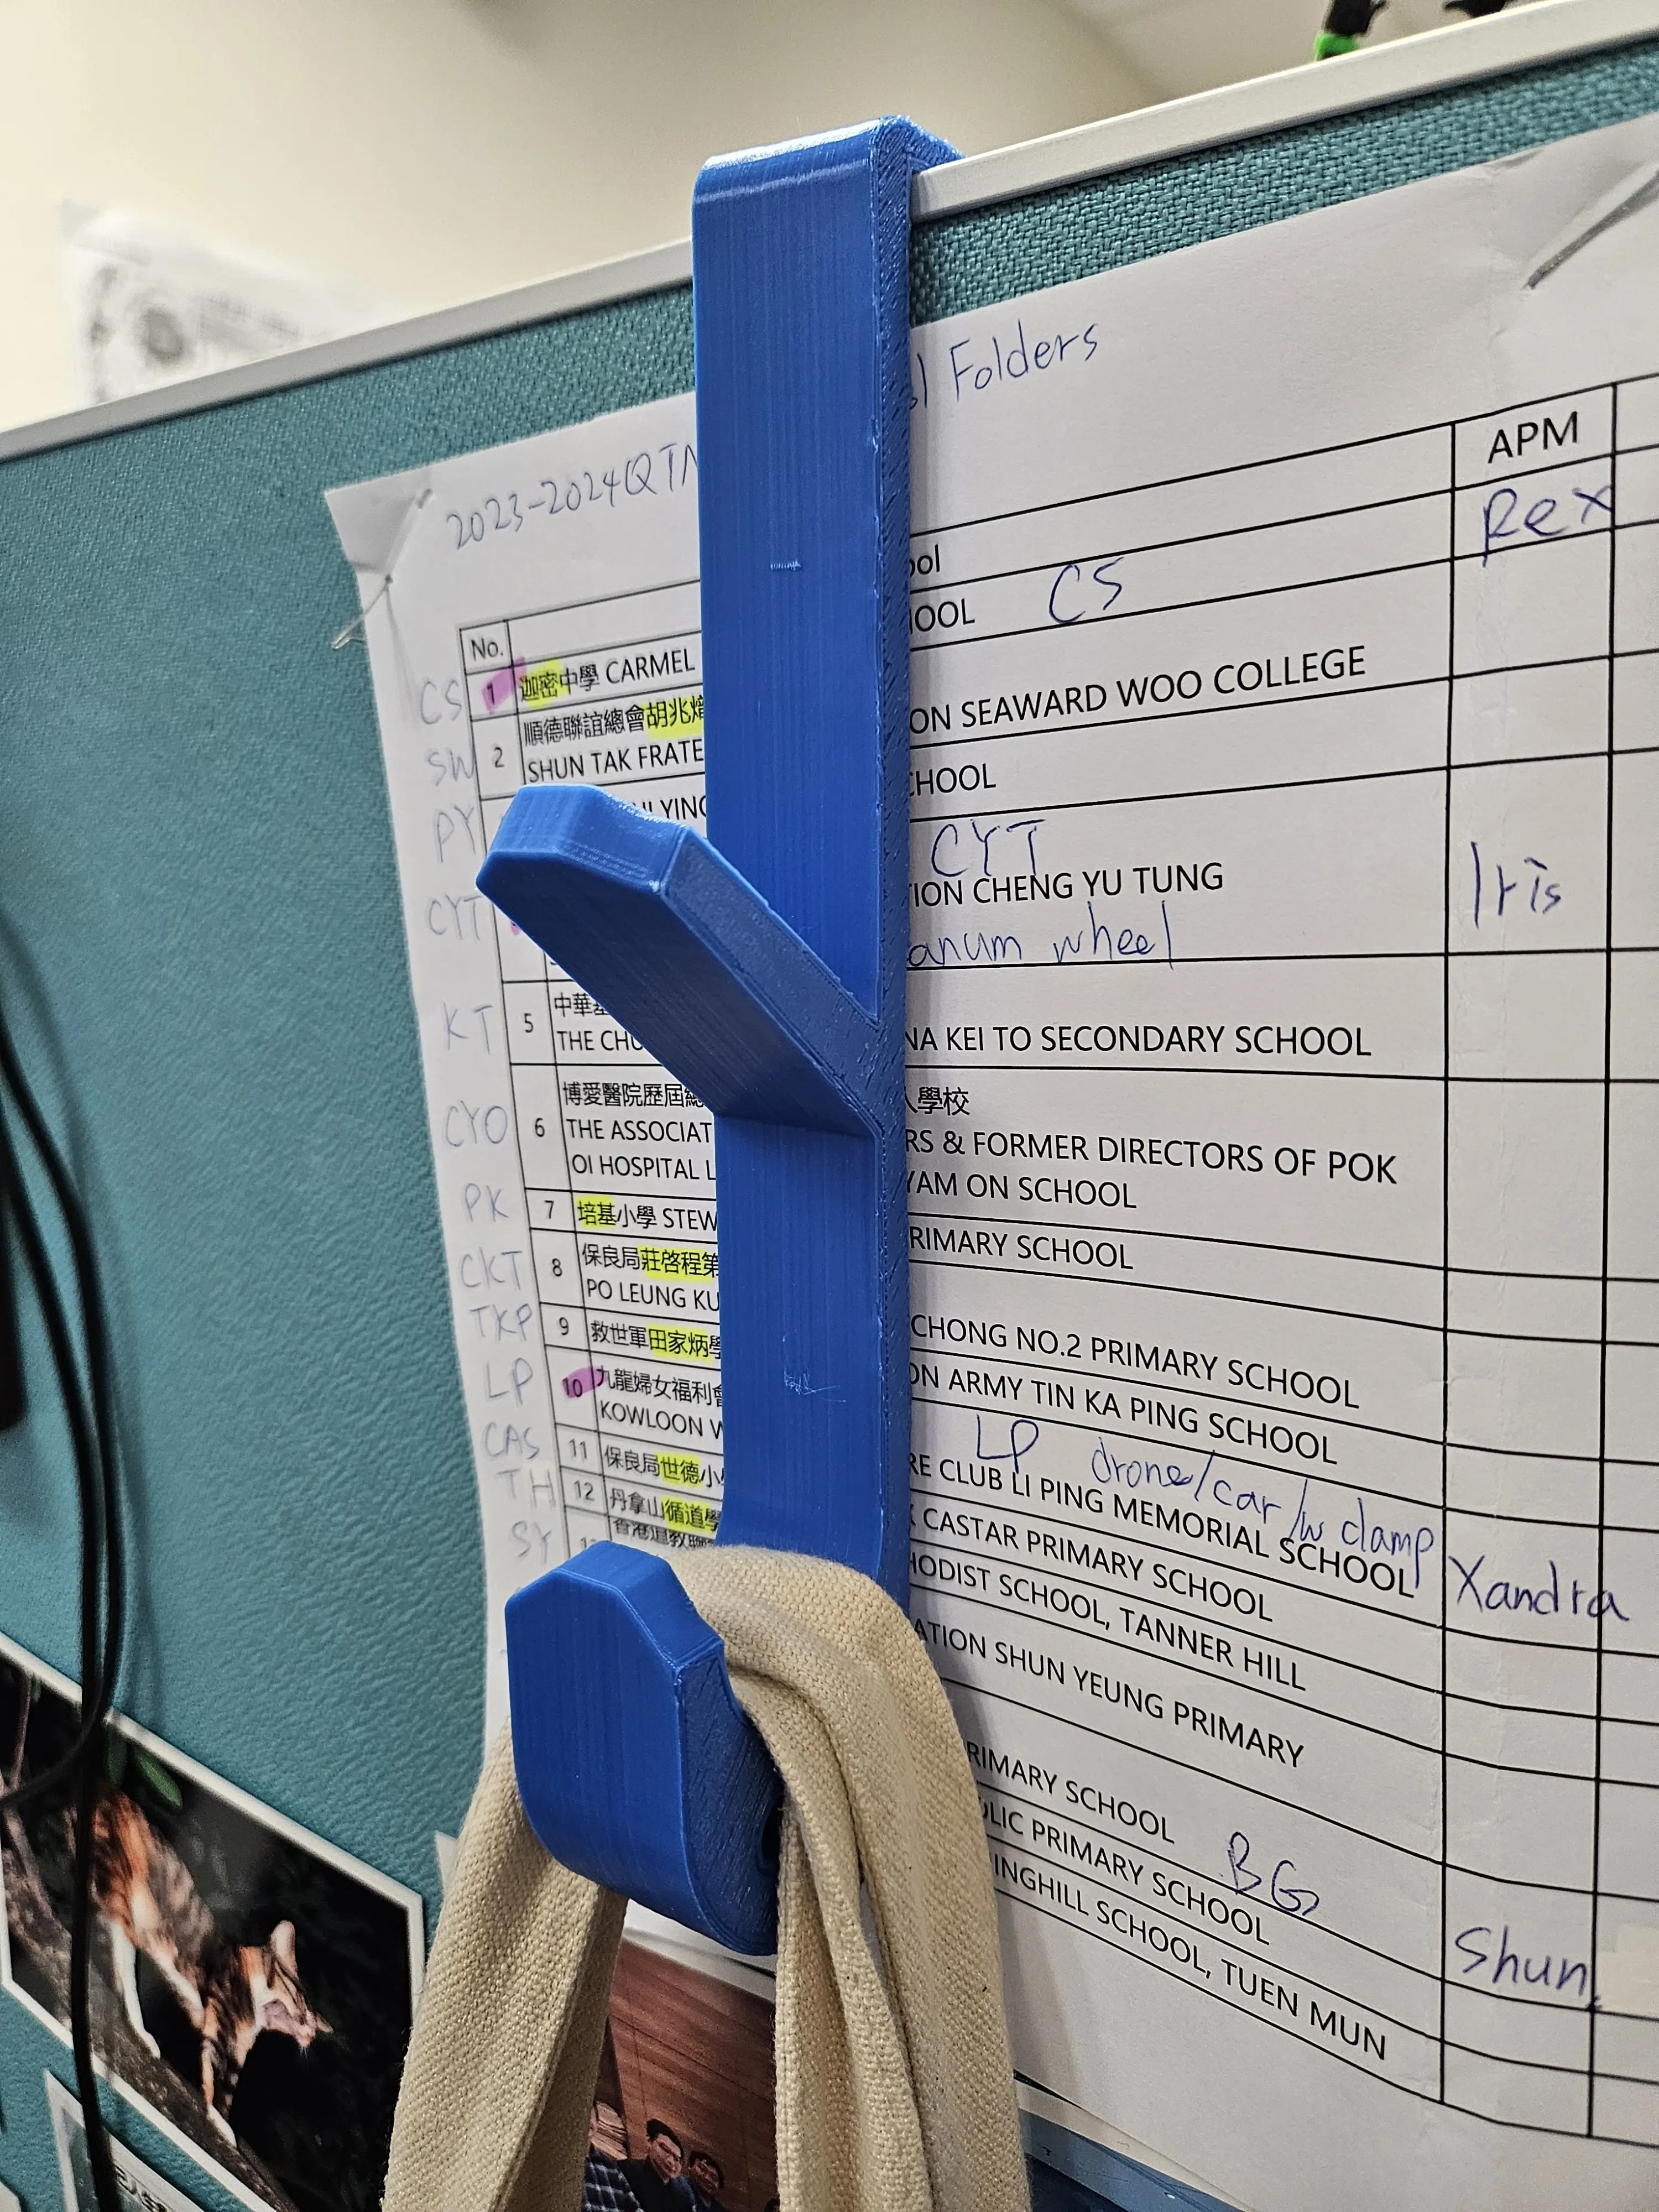 2023-2024 QTN
ol Folders
No.
ool
APM
CS
1
迦密中學 CARMEL
OOL
CS
Rex
SW
2
順德聯誼總會胡兆熾
SHUN TAK FRATE
ON SEAWARD WOO COLLEGE
PY
YING
CHOOL
CYT
CYT
TION CHENG YU TUNG
anum wheel
Iris
KT
5
中華基
THE CHU
NA KEI TO SECONDARY SCHOOL
CYO
6
博愛醫院歷屆總
人學校
THE ASSOCIAT
RS & FORMER DIRECTORS OF POK
OI HOSPITAL L
YAM ON SCHOOL
PK
7
培基小學 STEW
RIMARY SCHOOL
CKT
8
保良局莊啓程第
PO LEUNG KU
CHONG NO.2 PRIMARY SCHOOL
TKP
9
救世軍田家炳學
ON ARMY TIN KA PING SCHOOL
LP
10
九龍婦女福利會
LP drone/car/w clamp
KOWLOON W
RE CLUB LI PING MEMORIAL SCHOOL
Xandra
CAS
11
保良局世德小
K CASTAR PRIMARY SCHOOL
TH
12
丹拿山循道學
HODIST SCHOOL, TANNER HILL
SY
13
香港道教聯
ATION SHUN YEUNG PRIMARY
RIMARY SCHOOL
BG
LIC PRIMARY SCHOOL
Shun
INGHILL SCHOOL, TUEN MUN